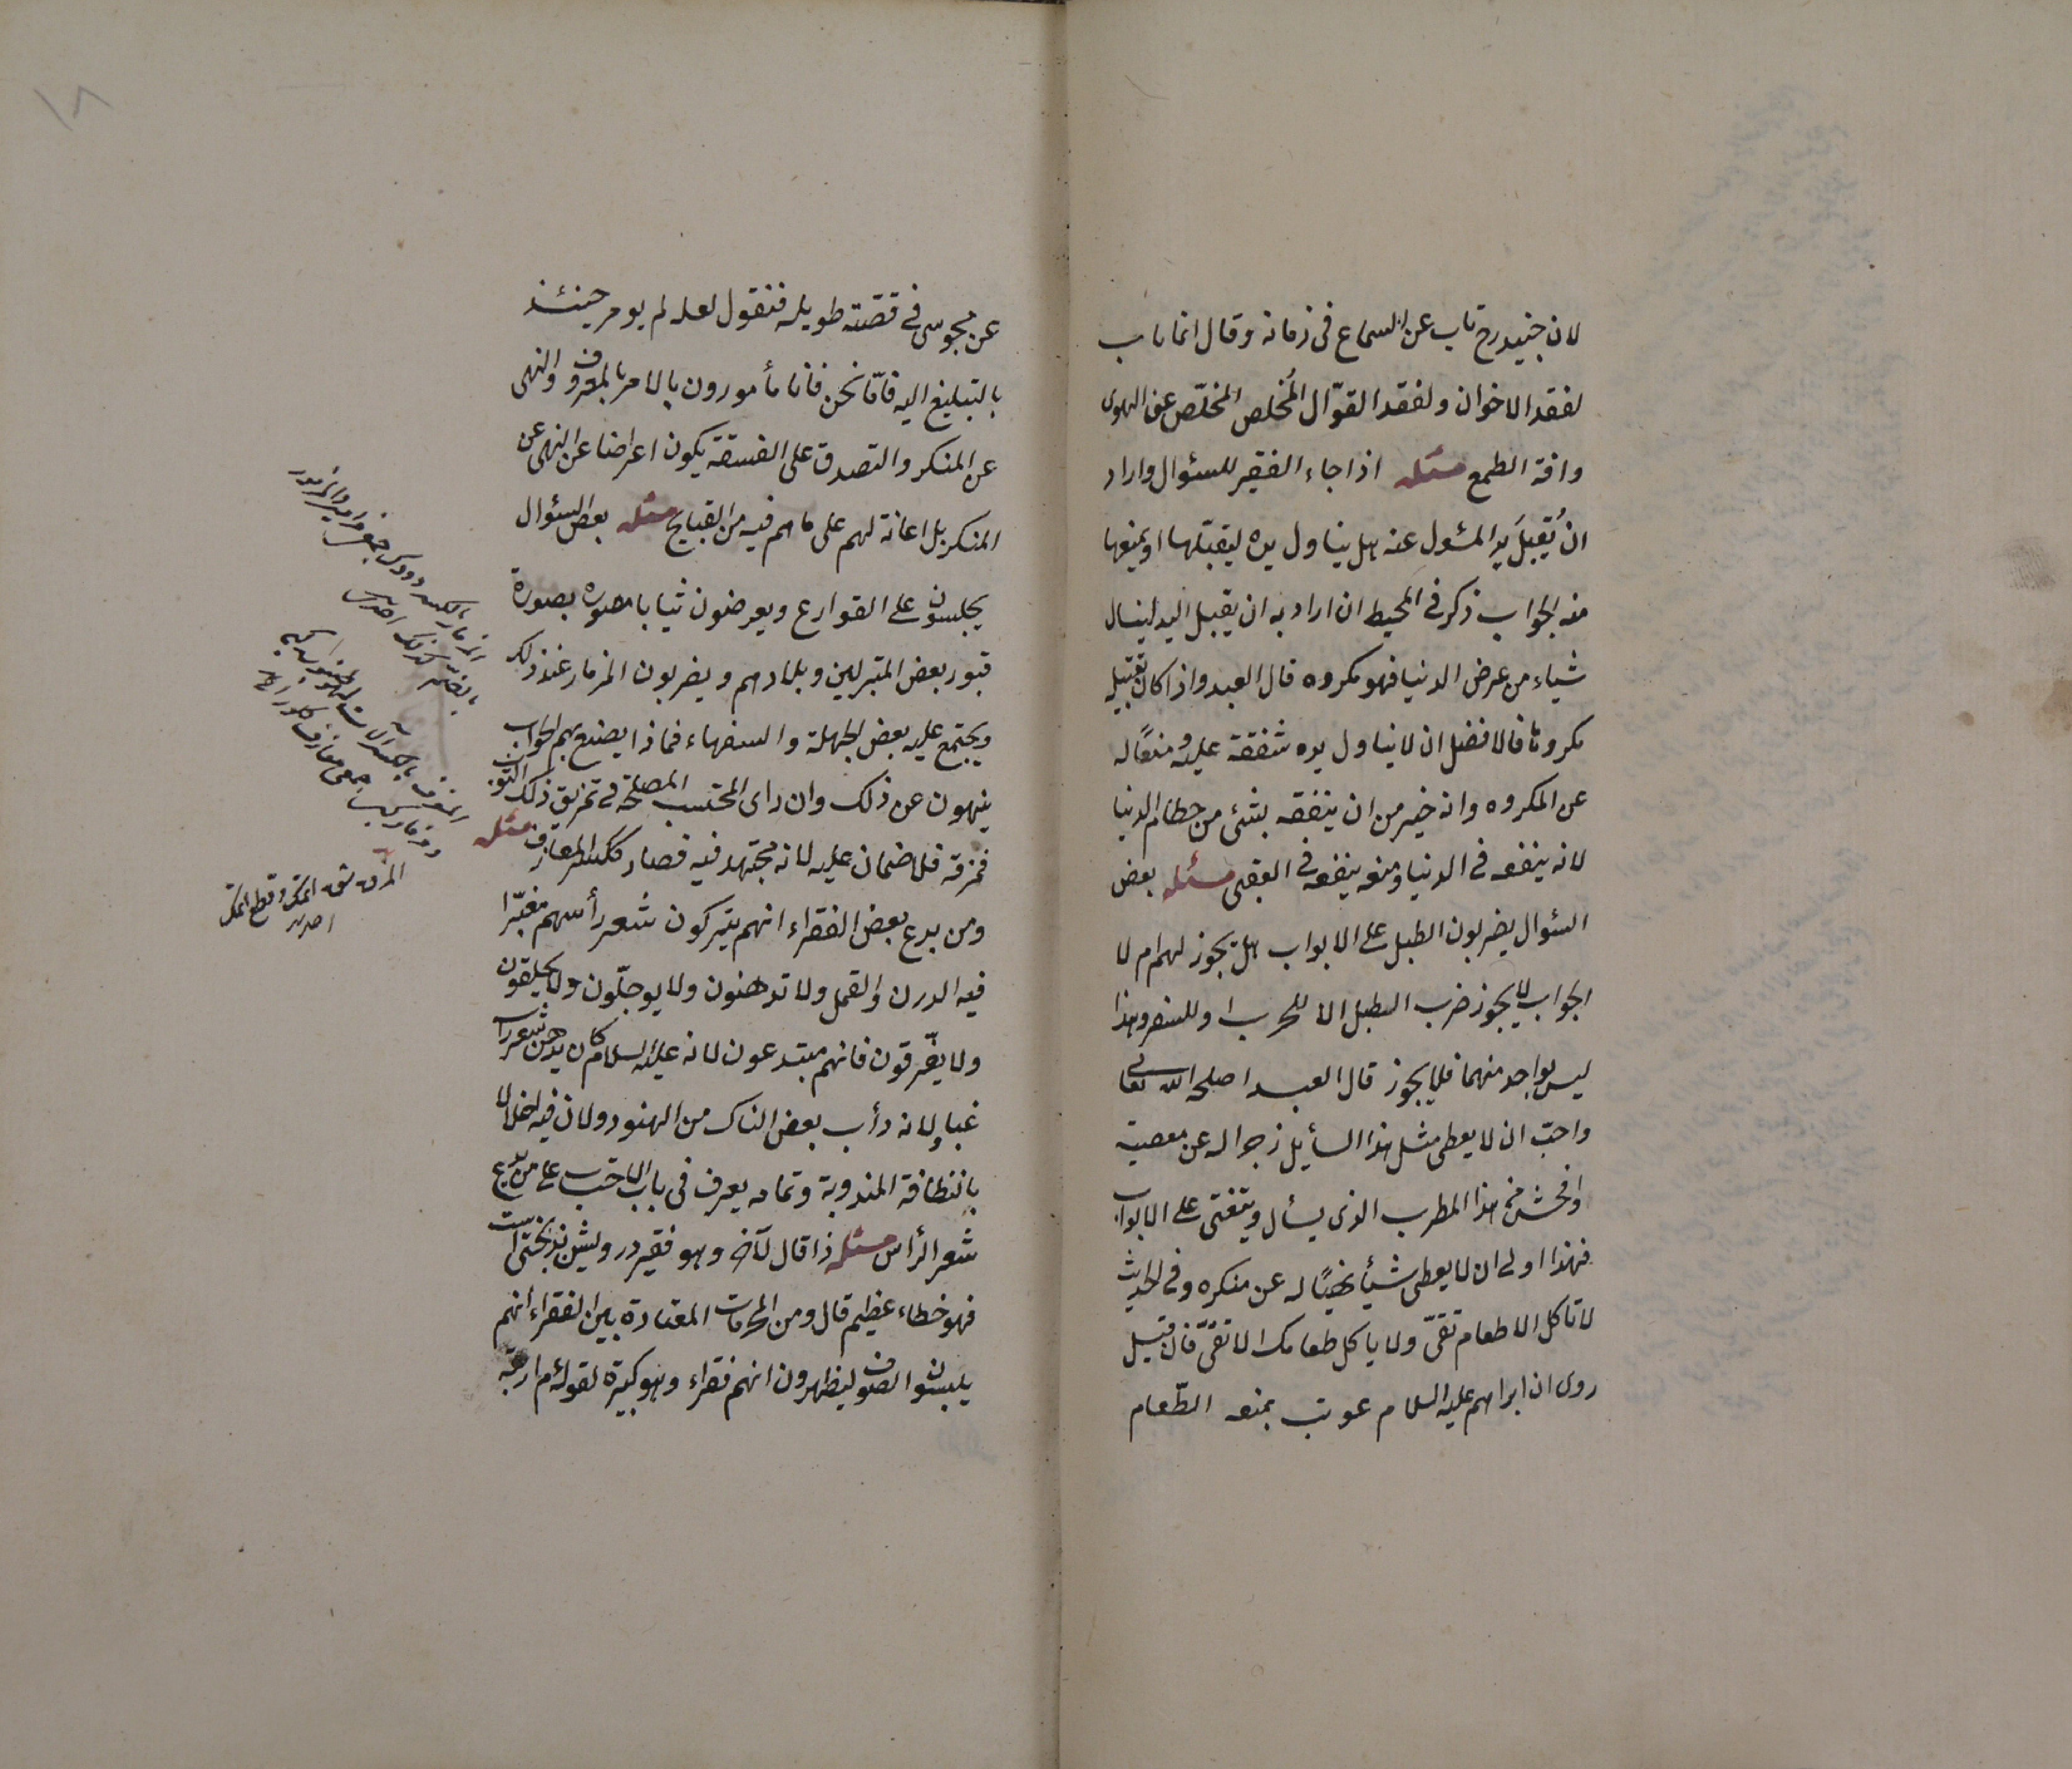 لان جنيد رح تاب عن السماع فى زمانه وقال انما تاب
لفقد الاخوان ولفقد القوّال المُخلص المخلّص عن الهوى
وافة الطمع مسئله اذا جاء الفقير للسئوال واراد
ان يُقبلَ يد المسئول عنه هل يناول يده ليقبّلها او يمنعها
منه الجواب ذكر فى المحيط ان اراد به ان يقبل اليد لينال
شياء من عرض الدنيا فهو مكروه قال العبد واذا كان تقبيله
مكروها فالافضل ان لا يناول يده شفقة عليه ومنعًا له
عن المكروه وانه خير من ان ينفقه بشئ من حطام الدنيا
لانه ينفعه فى الدنيا ومنعه ينفعه فى العقبى مسئله بعض
السئوال يضربون الطبل على الابواب هل يجوز لهم ام لا
الجواب لا يجوز ضرب الطبل الا للحرب او للسفر وهذا
ليس بواحد منهما فلا يجوز قال العبد اصلحه الله تعالى
واحبّ ان لا يعطى مثل هذا السأيل زجرا له عن معصية
وافحش من هذا المطرب الذى يسأل ويتغنى على الابواب
فهذا اولى ان لا يعطى شيأ نهيًا له عن منكره وفى الحديث
لا تاكل الا طعام تقىّ ولا ياكل طعامك الا تقىّ فان قيل
روى ان ابراهيم عليه السلام عوتب بمنعه الطّعام
١٨
عن مجوسى فى قصّته طويله فنقول لعله لم يومر حينئذ
بالتبليغ اليه فامّا نحن فانا مأمورون بالامر بالمعروف والنهى
عن المنكر والتصدق على الفسقة يكون اعراضا عن النهى عن
المنكر بل اعانة لهم على ما هم فيه من القبايح مسئله بعض السئوال
يجلسون على القوارع ويعرضون ثيابا مصوره بصورة
قبور بعض المتبركين وبلادهم ويضربون المزمار عند ذلك
ويجتمع عليه بعض الجهلة والسفهاء فماذا يصنع بهم الجواب
ينهون عن ذلك وان راى المحتسب المصلحة فى تمزيق ذلك الثوب
فمزقه فلا ضمان عليه لانه مجتهد فيه فصار ككسر المعازف مسئله
ومن بدع بعض الفقراء انهم يتركون شعر رأسهم مغبّرا
فيه الدرن والقمل ولا تدهنون ولا يوجلّون ولا يحلقون
ولا يفّرقون فانهم مبتدعون لانه عليه السلام كان يدهن شعر رأسه
غبا ولانه دأب بعض النساك من الهنود ولان فيه اخلالا
بالنظافة المندوبة وتمامه يعرف فى باب الاحتساب على من يدع
شعر الرأس مسئله اذا قال لآخر وهو فقير درويش بدبختى است
فهو خطاء عظيم قال ومن المحرمات المعتادة بين الفقراء انهم
يلبسون الصوف ليظهرون انهم فقراء وهو كبيرة لقوله م اربعة
المزق شق المكر وقطع المكر